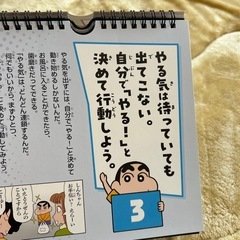 やる気は待っていても
出てこない。
自分で「やる!」と
決めて行動しよう。
3
やる気を出すには、自分で「やる!」と決めて
動き始めるしかないんだ。
お風呂に入る
歯磨きだってできる。
「やる気」は、どんどん連鎖するんだ。
何でもいいから、まずひとつ、
決めて行動してみよう。
しんちゃん